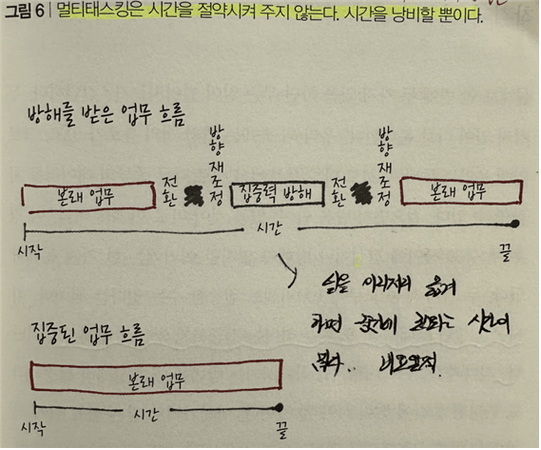 그림 6 | 멀티태스킹은 시간을 절약시켜 주지 않는다. 시간을 낭비할 뿐이다.
방해를 받은 업무 흐름
본래 업무 전환 방향 재조정 집중력 방해 전환 방향 재조정 본래 업무
시작 시간 끝
집중된 업무 흐름
본래 업무
시작 시간 끝